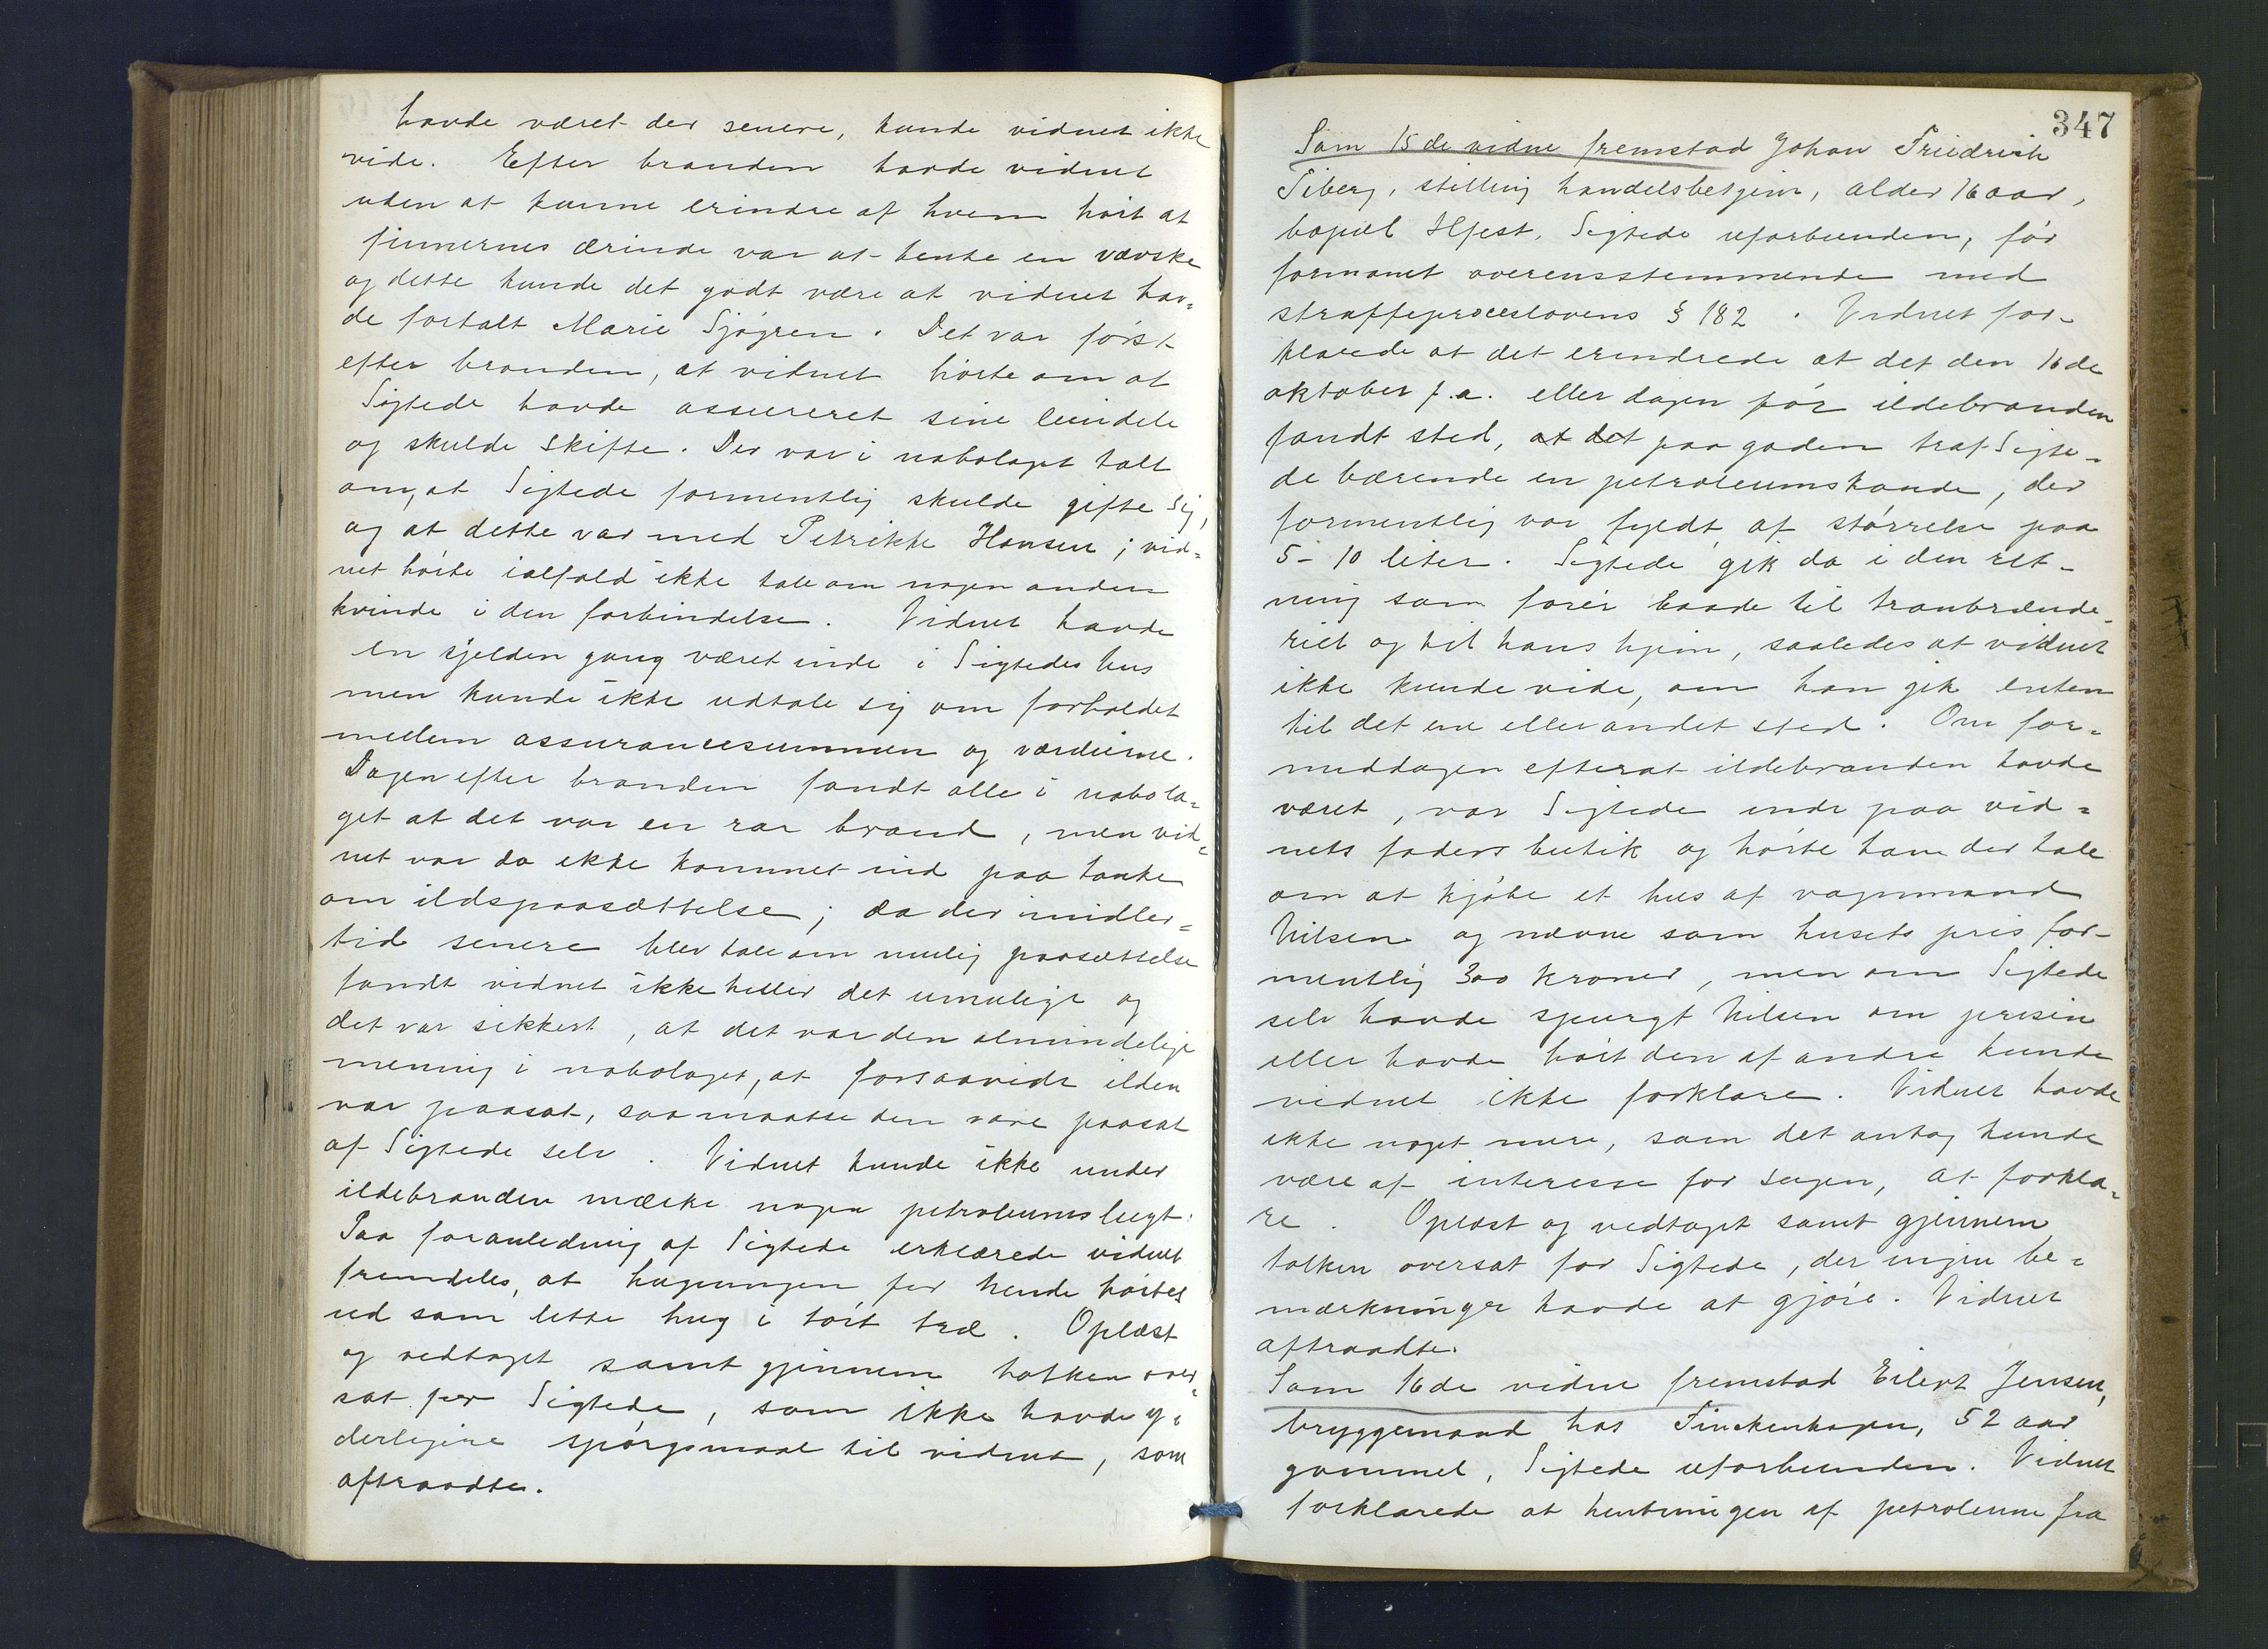 havde været der senere, kunde vidnet ikke
vide. Efter branden havde vidnet
uden at kunne erindre af hvem hørt at
finnernes ærinde var at hente en vævske
og dette kunde det godt være at vidnet hav=
de fortalt Marie Sjøgren. Det var først
efter branden, at vidnet hørte om at
Sigtede havde assureret sine eiendele
og skulde skifte. Der var i nabolaget talt
om, at Sigtede formentlig skulde gifte sig,
og at dette var med Petrikke Hansen; vid=
net hørte ialfald ikke tale om nogen anden
kvinde i den forbindelse. Vidnet havde
en sjelden gang været inde i Sigtedes hus
men kunde ikke udtale sig om forholdet
mellem assurancesummen og værdierne.
Dagen efter branden fandt alle i nabola=
get at det var en rar brand, men vid=
net var da ikke kommet ind paa tanke
om ildspaasættelse; da der imidler=
tid senere blev tale om mulig paasættelse
fandt vidnet ikke heller det umulige og
det var sikkert, at det var den almindelige
mening i nabolaget, at forsaavidt ilden
var paasat, saa maatte den være paasat
af Sigtede selv. Vidnet kunde ikke under
ildebranden mærke nogen petroleumslugt.
Paa foranledning af Sigtede erklærede vidnet
fremdeles, at hugningen for hende hørtes
ud som lette hug i tørt træ. Oplæst
og vedtaget samt gjennem tolken over=
sat for Sigtede, som ikke havde y=
derligere spørgsmaal til vidnet, som
aftraadte.
347
Som 15de vidne fremstod Johan Friedrich
Siberg, stilling handelsbetjent, alder 16 aar,
bopæl Hfest, Sigtede uforbunden, før
formanet overensstemmende med
straffeproceslovens § 182. Vidnet for=
klarede at det erindrede at det den 16de
oktober f.a. eller dagen før ildebranden
fandt sted, at det paa gaden traf Sigte=
de bærende en petroleumskande, der
formentlig var fyldt, af størrelse paa
5-10 liter. Sigtede gik da i den ret=
ning som fører baade til tranbrænde=
riet og til hans hjem, saaledes at vidnet
ikke kunde vide, om han gik enten
til det ene eller andet sted. Om for=
middagen efterat ildebranden havde
været, var Sigtede inde paa vid=
nets faders butik og hørte ham der tale
om at kjøbe et hus af vognmand
Nilsen og nævne som husets pris for=
mentlig 300 kroner, men om Sigtede
selv havde spurgt Nilsen om prisen
eller havde hørt den af andre kunde
vidnet ikke forklare. Vidnet havde
ikke noget mere, som det antog kunde
være af interesse for sagen, at forkla=
re. Oplæst og vedtaget samt gjennem
tolken oversat for Sigtede, der ingen be=
mærkninger havde at gjøre. Vidnet
aftraadte.
Som 16de vidne fremstod Eilert Jensen,
bryggemand hos Finckenhagen, 52 aar
gammel, Sigtede uforbunden. Vidnet
forklarede at hentningen af petroleum fra